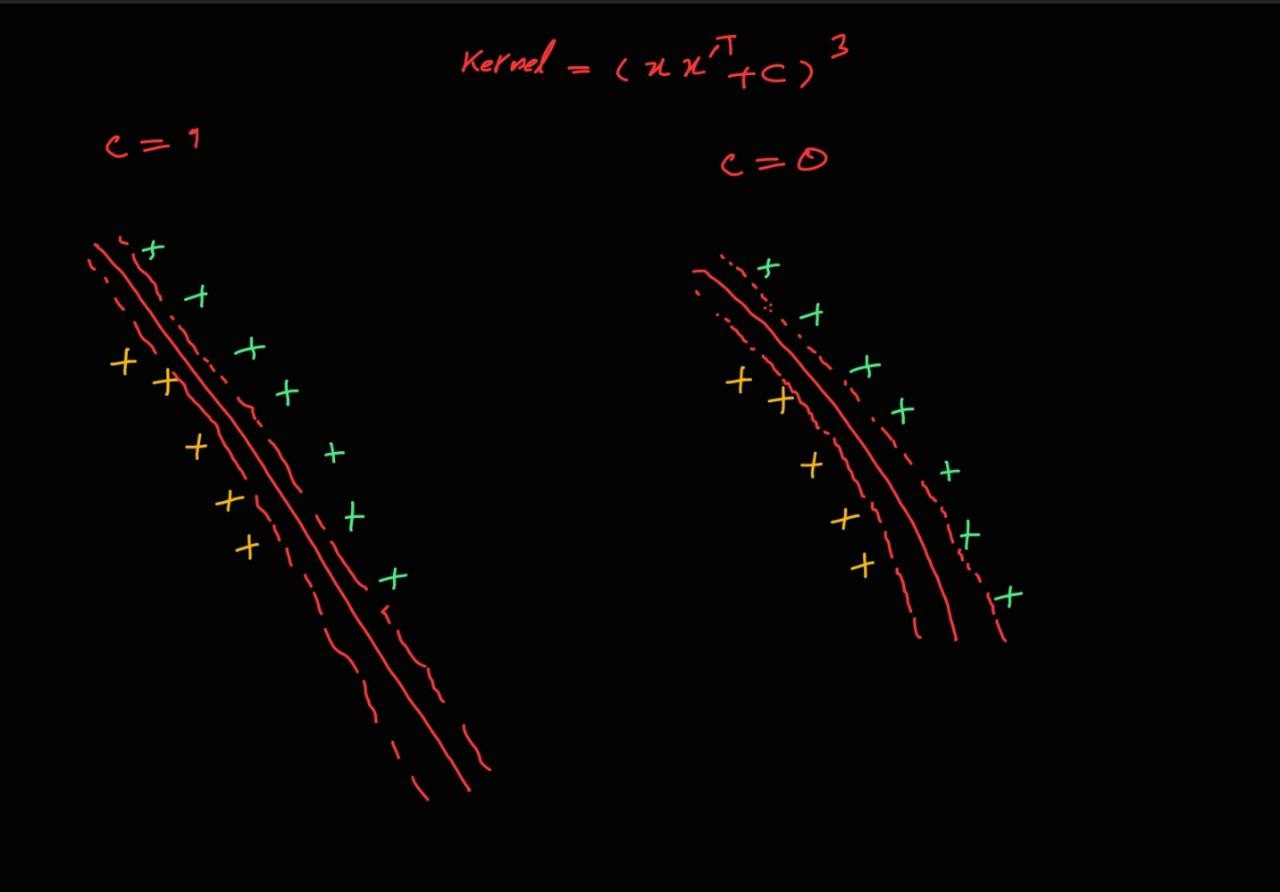 Kernel = (x x'ᵀ + c)³
c = 1
c = 0